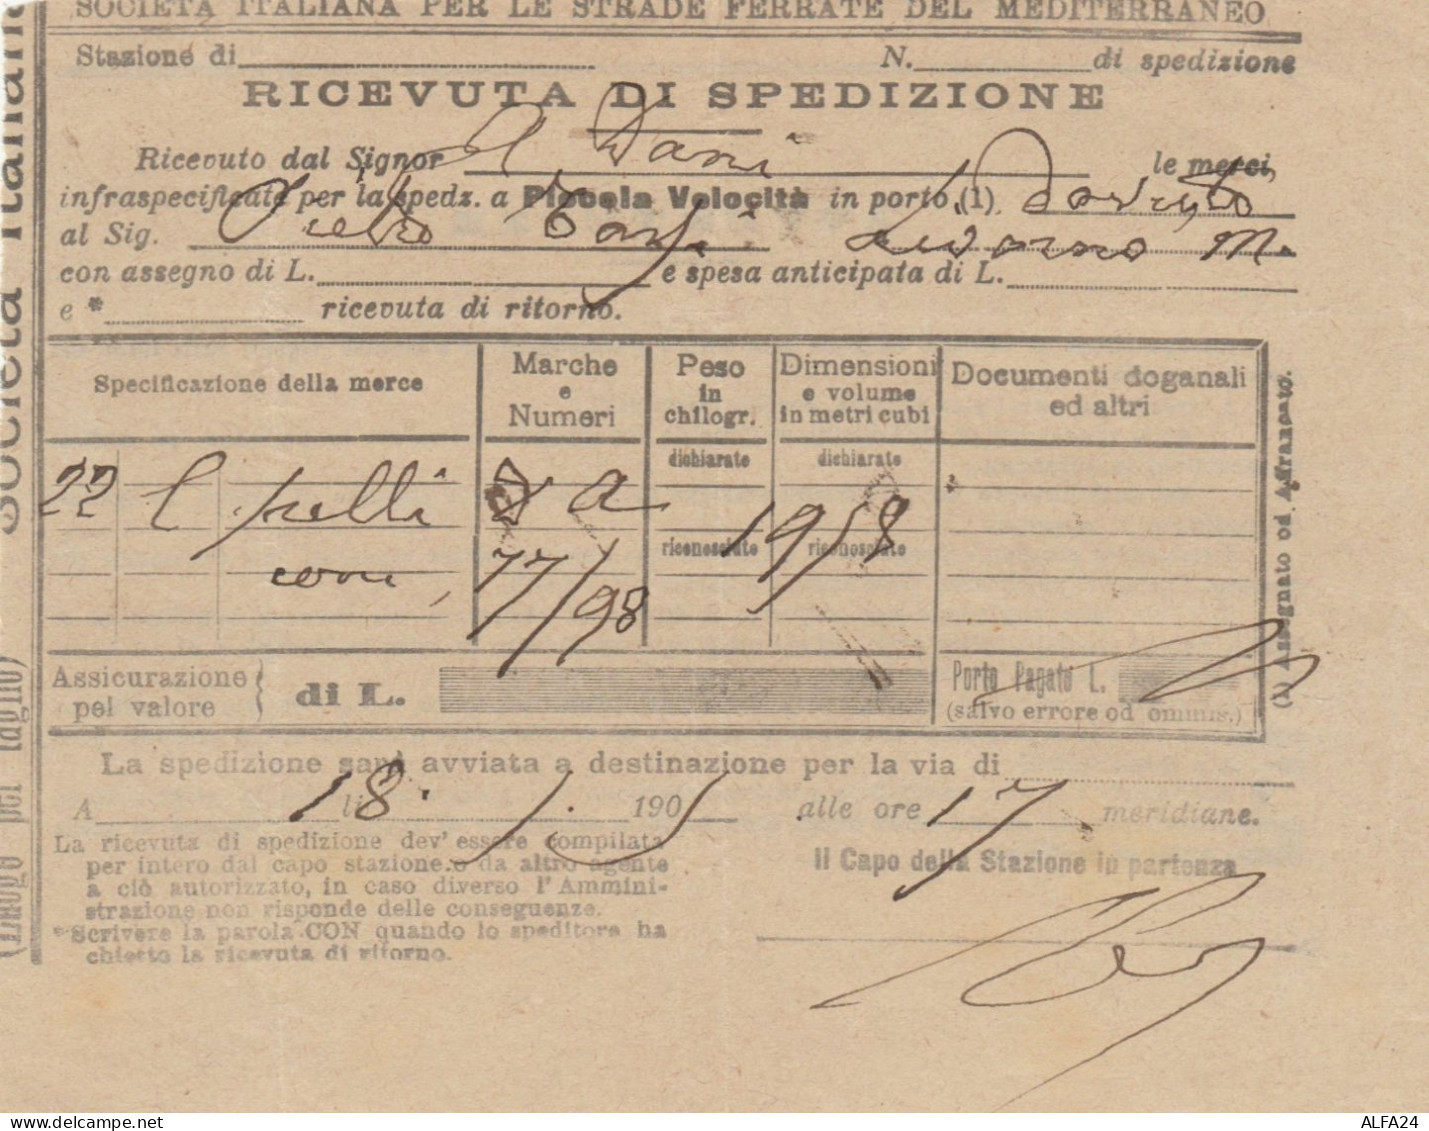 SOCIETÀ ITALIANA PER LE STRADE FERRATE DEL MEDITERRANEO
Stazione di N. di spedizione
RICEVUTA DI SPEDIZIONE
Ricevuto dal Signor A Dani le merci
infraspecificate per la spedz. a Piccola Velocità in porto (1)
al Sig. Pietro Livorno M.
con assegno di L. e spesa anticipata di L.
e * ricevuta di ritorno.
Specificazione della merce
Marche e Numeri
Peso in chilogr.
Dimensioni e volume in metri cubi
Documenti doganali ed altri
dichiarate dichiarate
22 pelli a 1958
riconosciute riconosciute
77/98
Assicurazione pel valore di L.
Porto Pagato L.
(salvo errore od ommis.)
(1) Assegnato od Affrancato.
La spedizione sarà avviata a destinazione per la via di
A li 18. 1. 1905 alle ore 17 meridiane.
Il Capo della Stazione in partenza
La ricevuta di spedizione dev' essere compilata
per intero dal capo stazione o da altro agente
a ciò autorizzato, in caso diverso l'Ammini-
strazione non risponde delle conseguenze.
*Scrivere la parola CON quando lo speditore ha
chiesto la ricevuta di ritorno.
Società Italiana
(Luogo pel taglio)
ALFA24